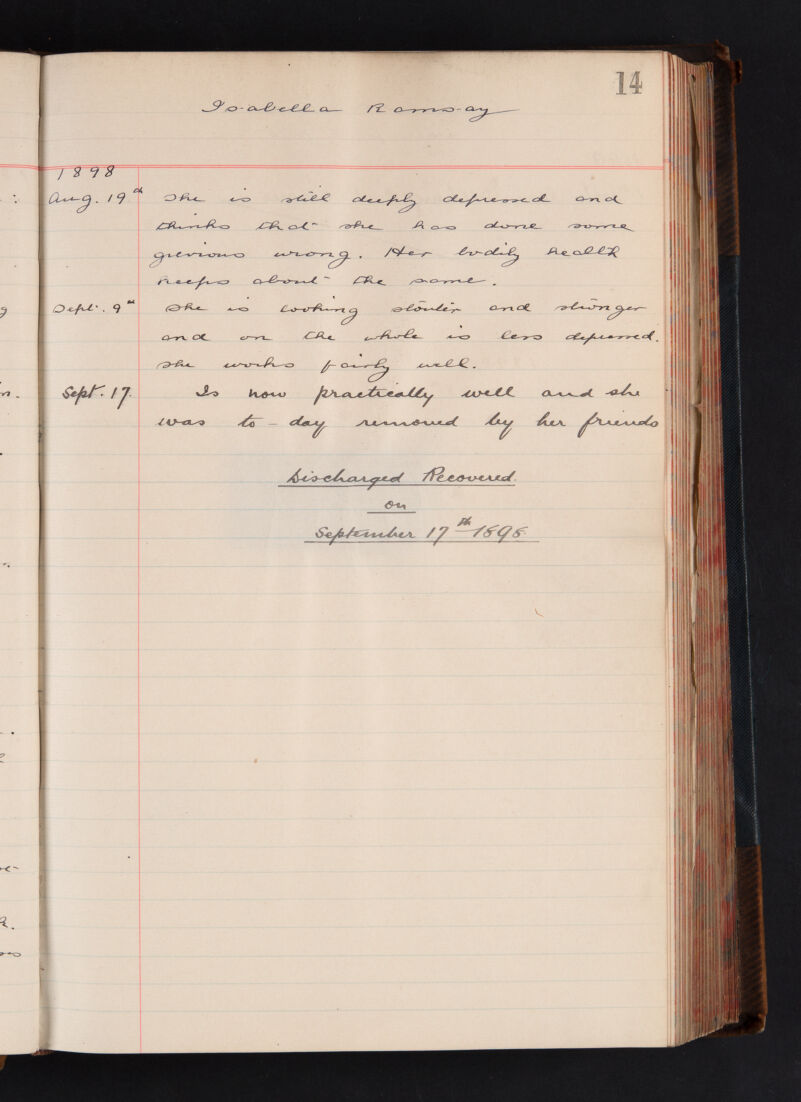 14
Isabella Ramsay
1898
Aug. 19th She is still deeply depressed and
thinks that she has done some
grevious wrong. Her bodily health
keeps about the same.
Sept. 9th She is looking stouter and stronger
and on the whole is less depressed.
She works fairly well.
Sept. 17. Is now practically well and she
was to-day removed by her friends
Discharged Recovered.
on
September 17th 1898.